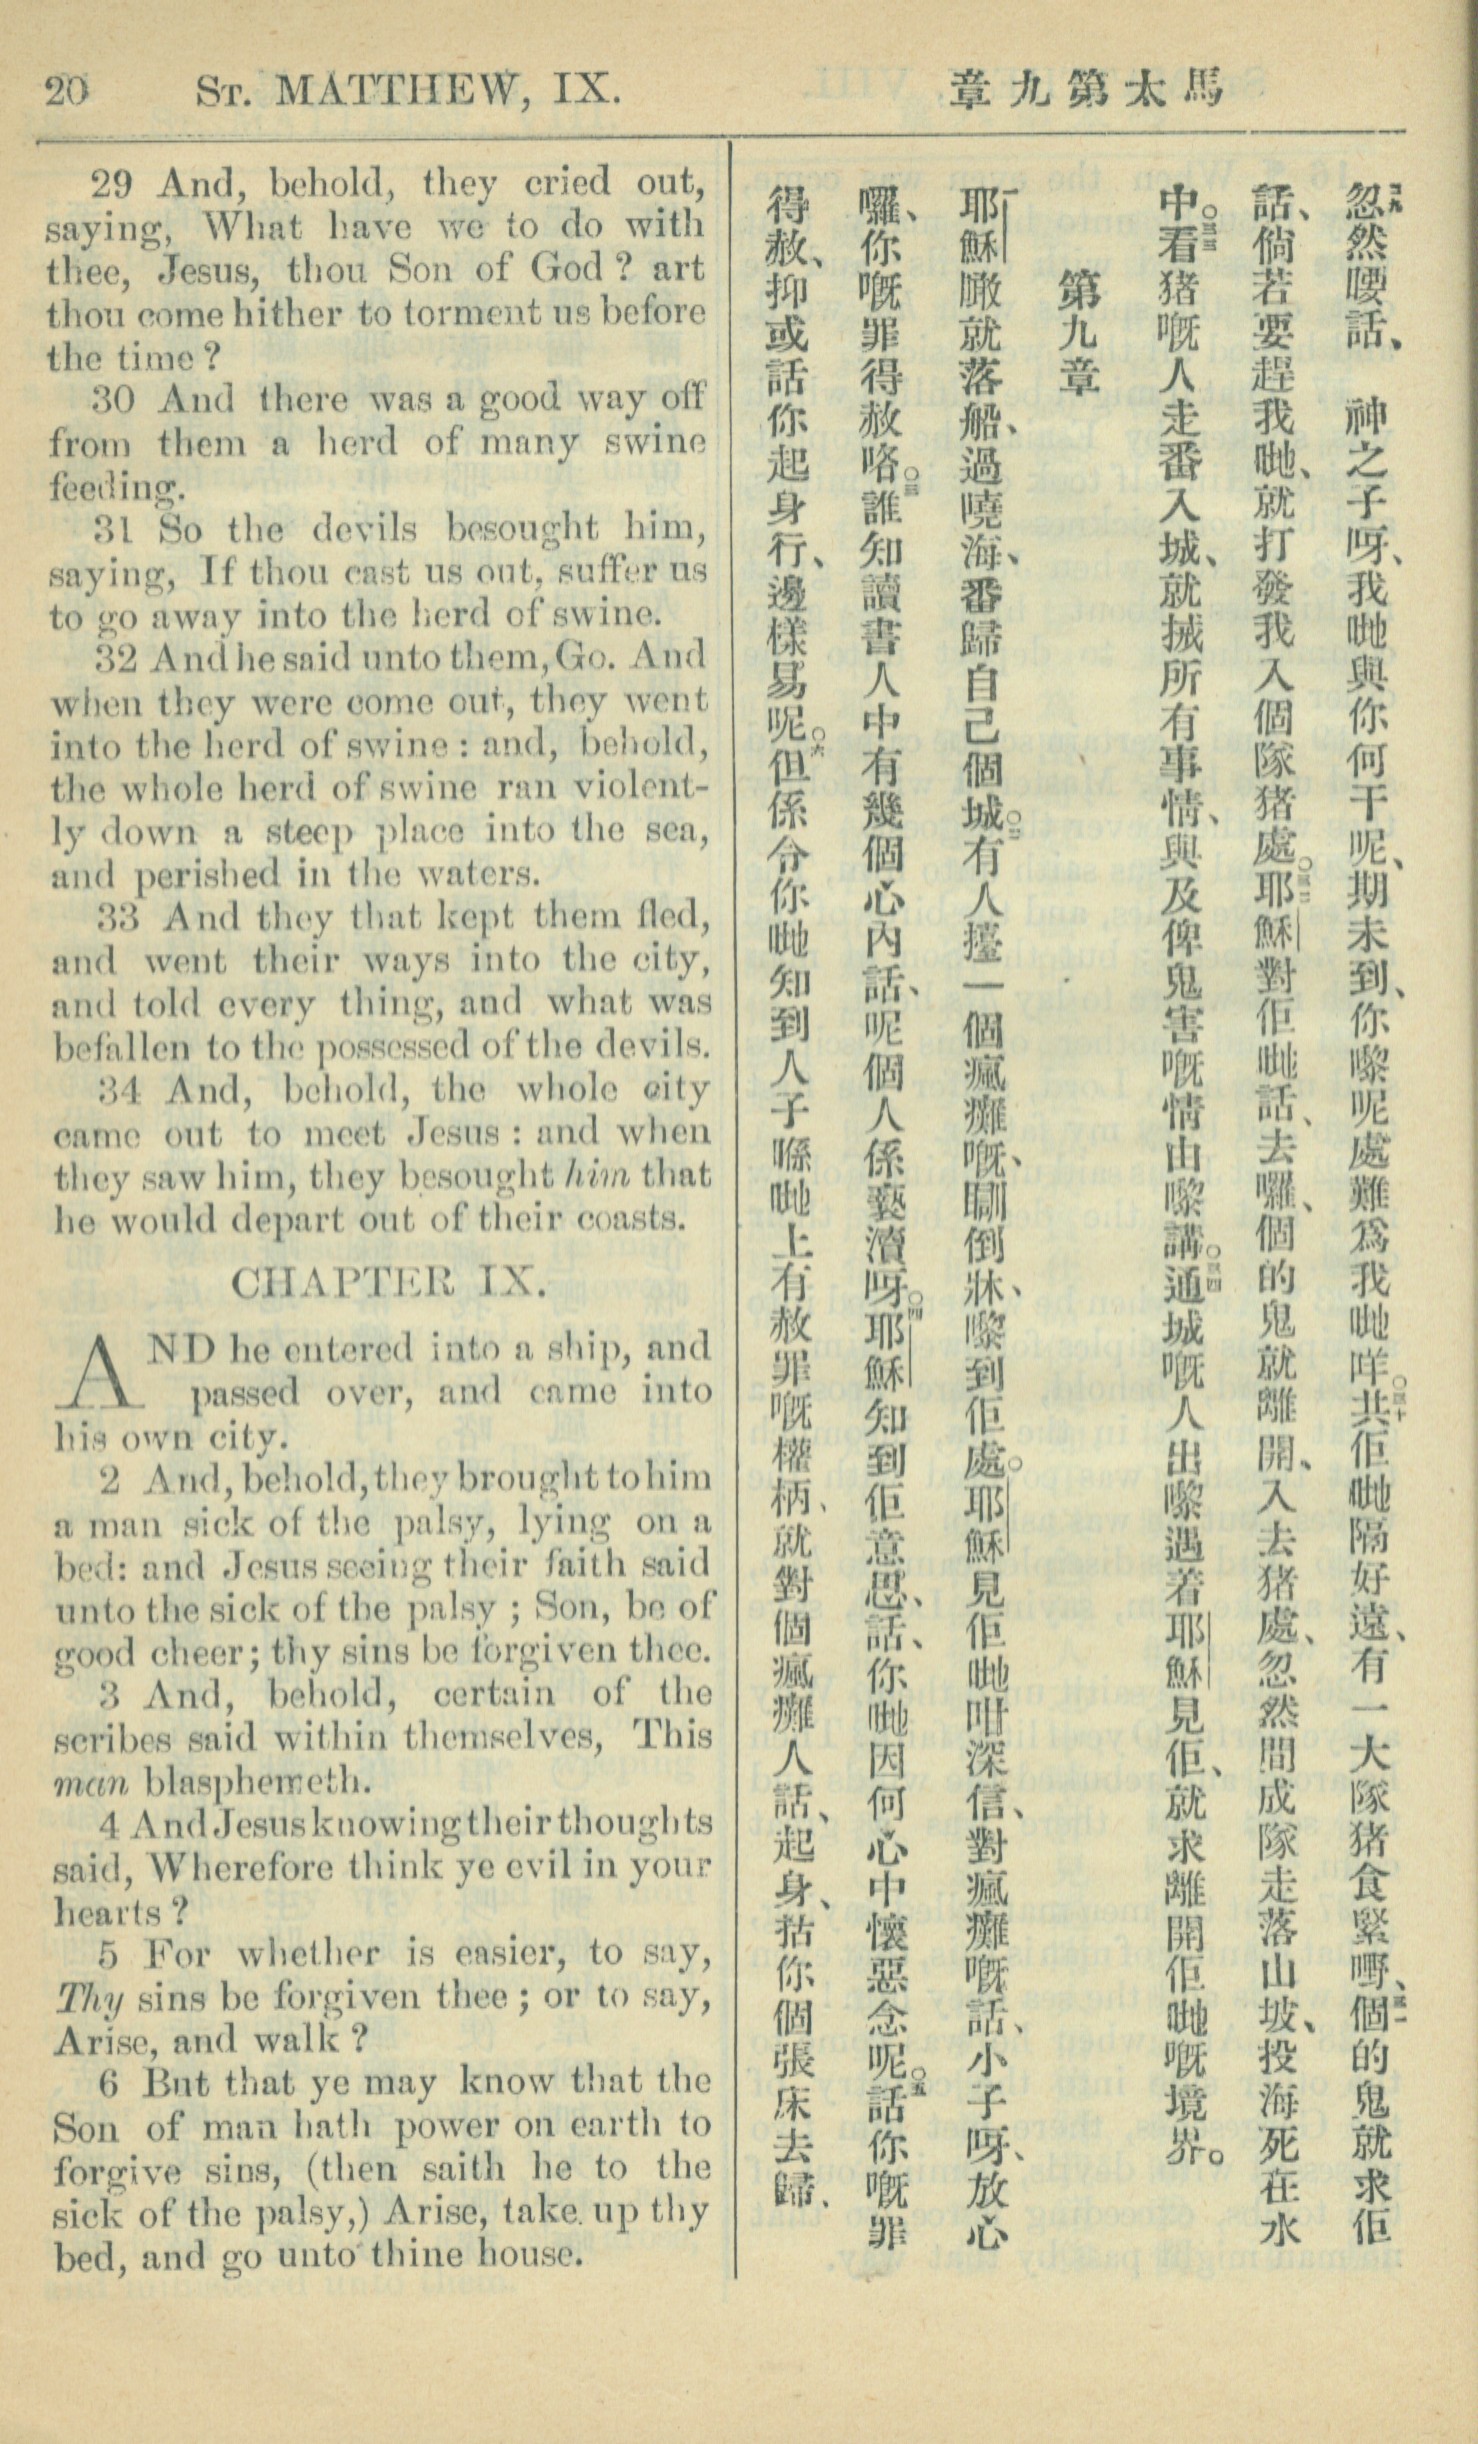 20 ST. MATTHEW, IX.
馬太第九章
29 And, behold, they cried out,
saying, What have we to do with
thee, Jesus, thou Son of God? art
thou come hither to torment us before
the time?
30 And there was a good way off
from them a herd of many swine
feeding.
31 So the devils besought him,
saying, If thou cast us out, suffer us
to go away into the herd of swine.
32 And he said unto them, Go. And
when they were come out, they went
into the herd of swine: and, behold,
the whole herd of swine ran violent-
ly down a steep place into the sea,
and perished in the waters.
33 And they that kept them fled,
and went their ways into the city,
and told every thing, and what was
befallen to the possessed of the devils.
34 And, behold, the whole city
came out to meet Jesus: and when
they saw him, they besought him that
he would depart out of their coasts.
CHAPTER IX.
AND he entered into a ship, and
passed over, and came into
his own city.
2 And, behold, they brought to him
a man sick of the palsy, lying on a
bed: and Jesus seeing their faith said
unto the sick of the palsy; Son, be of
good cheer; thy sins be forgiven thee.
3 And, behold, certain of the
scribes said within themselves, This
man blasphemeth.
4 And Jesus knowing their thoughts
said, Wherefore think ye evil in your
hearts?
5 For whether is easier, to say,
Thy sins be forgiven thee; or to say,
Arise, and walk?
6 But that ye may know that the
Son of man hath power on earth to
forgive sins, (then saith he to the
sick of the palsy,) Arise, take up thy
bed, and go unto thine house.
二九忽然嗌話、神之子呀、我哋與你何干呢、期未到、你嚟呢處難爲我哋咩。三十共佢哋隔好遠、有一大隊猪食緊嘢、三一個的鬼就求佢
話、倘若要趕我哋、就打發我入個隊猪處。三二耶穌對佢哋話、去囉、個的鬼就離開、入去猪處、忽然間成隊走落山坡、投海死在水
中。三三看猪嘅人走番入城、就搣所有事情、與及俾鬼害嘅情由嚟講。三四通城嘅人出嚟遇着耶穌見佢、就求離開佢哋嘅境界。
第九章
一耶穌瞰就落船、過嘵海、番歸自己個城。二有人擡一個瘋癱嘅、瞓倒牀、嚟到佢處。耶穌見佢哋咁深信、對瘋癱嘅話、小子呀、放心
囉、你嘅罪得赦咯。三誰知讀書人中有幾個心內話、呢個人係褻瀆呀。四耶穌知到佢意思、話、你哋因何心中懷惡念呢。五話你嘅罪
得赦、抑或話你起身行、邊樣易呢。六但係令你哋知到人子喺哋上有赦罪嘅權柄、就對個瘋癱人話、起身、拈你個張床去歸、